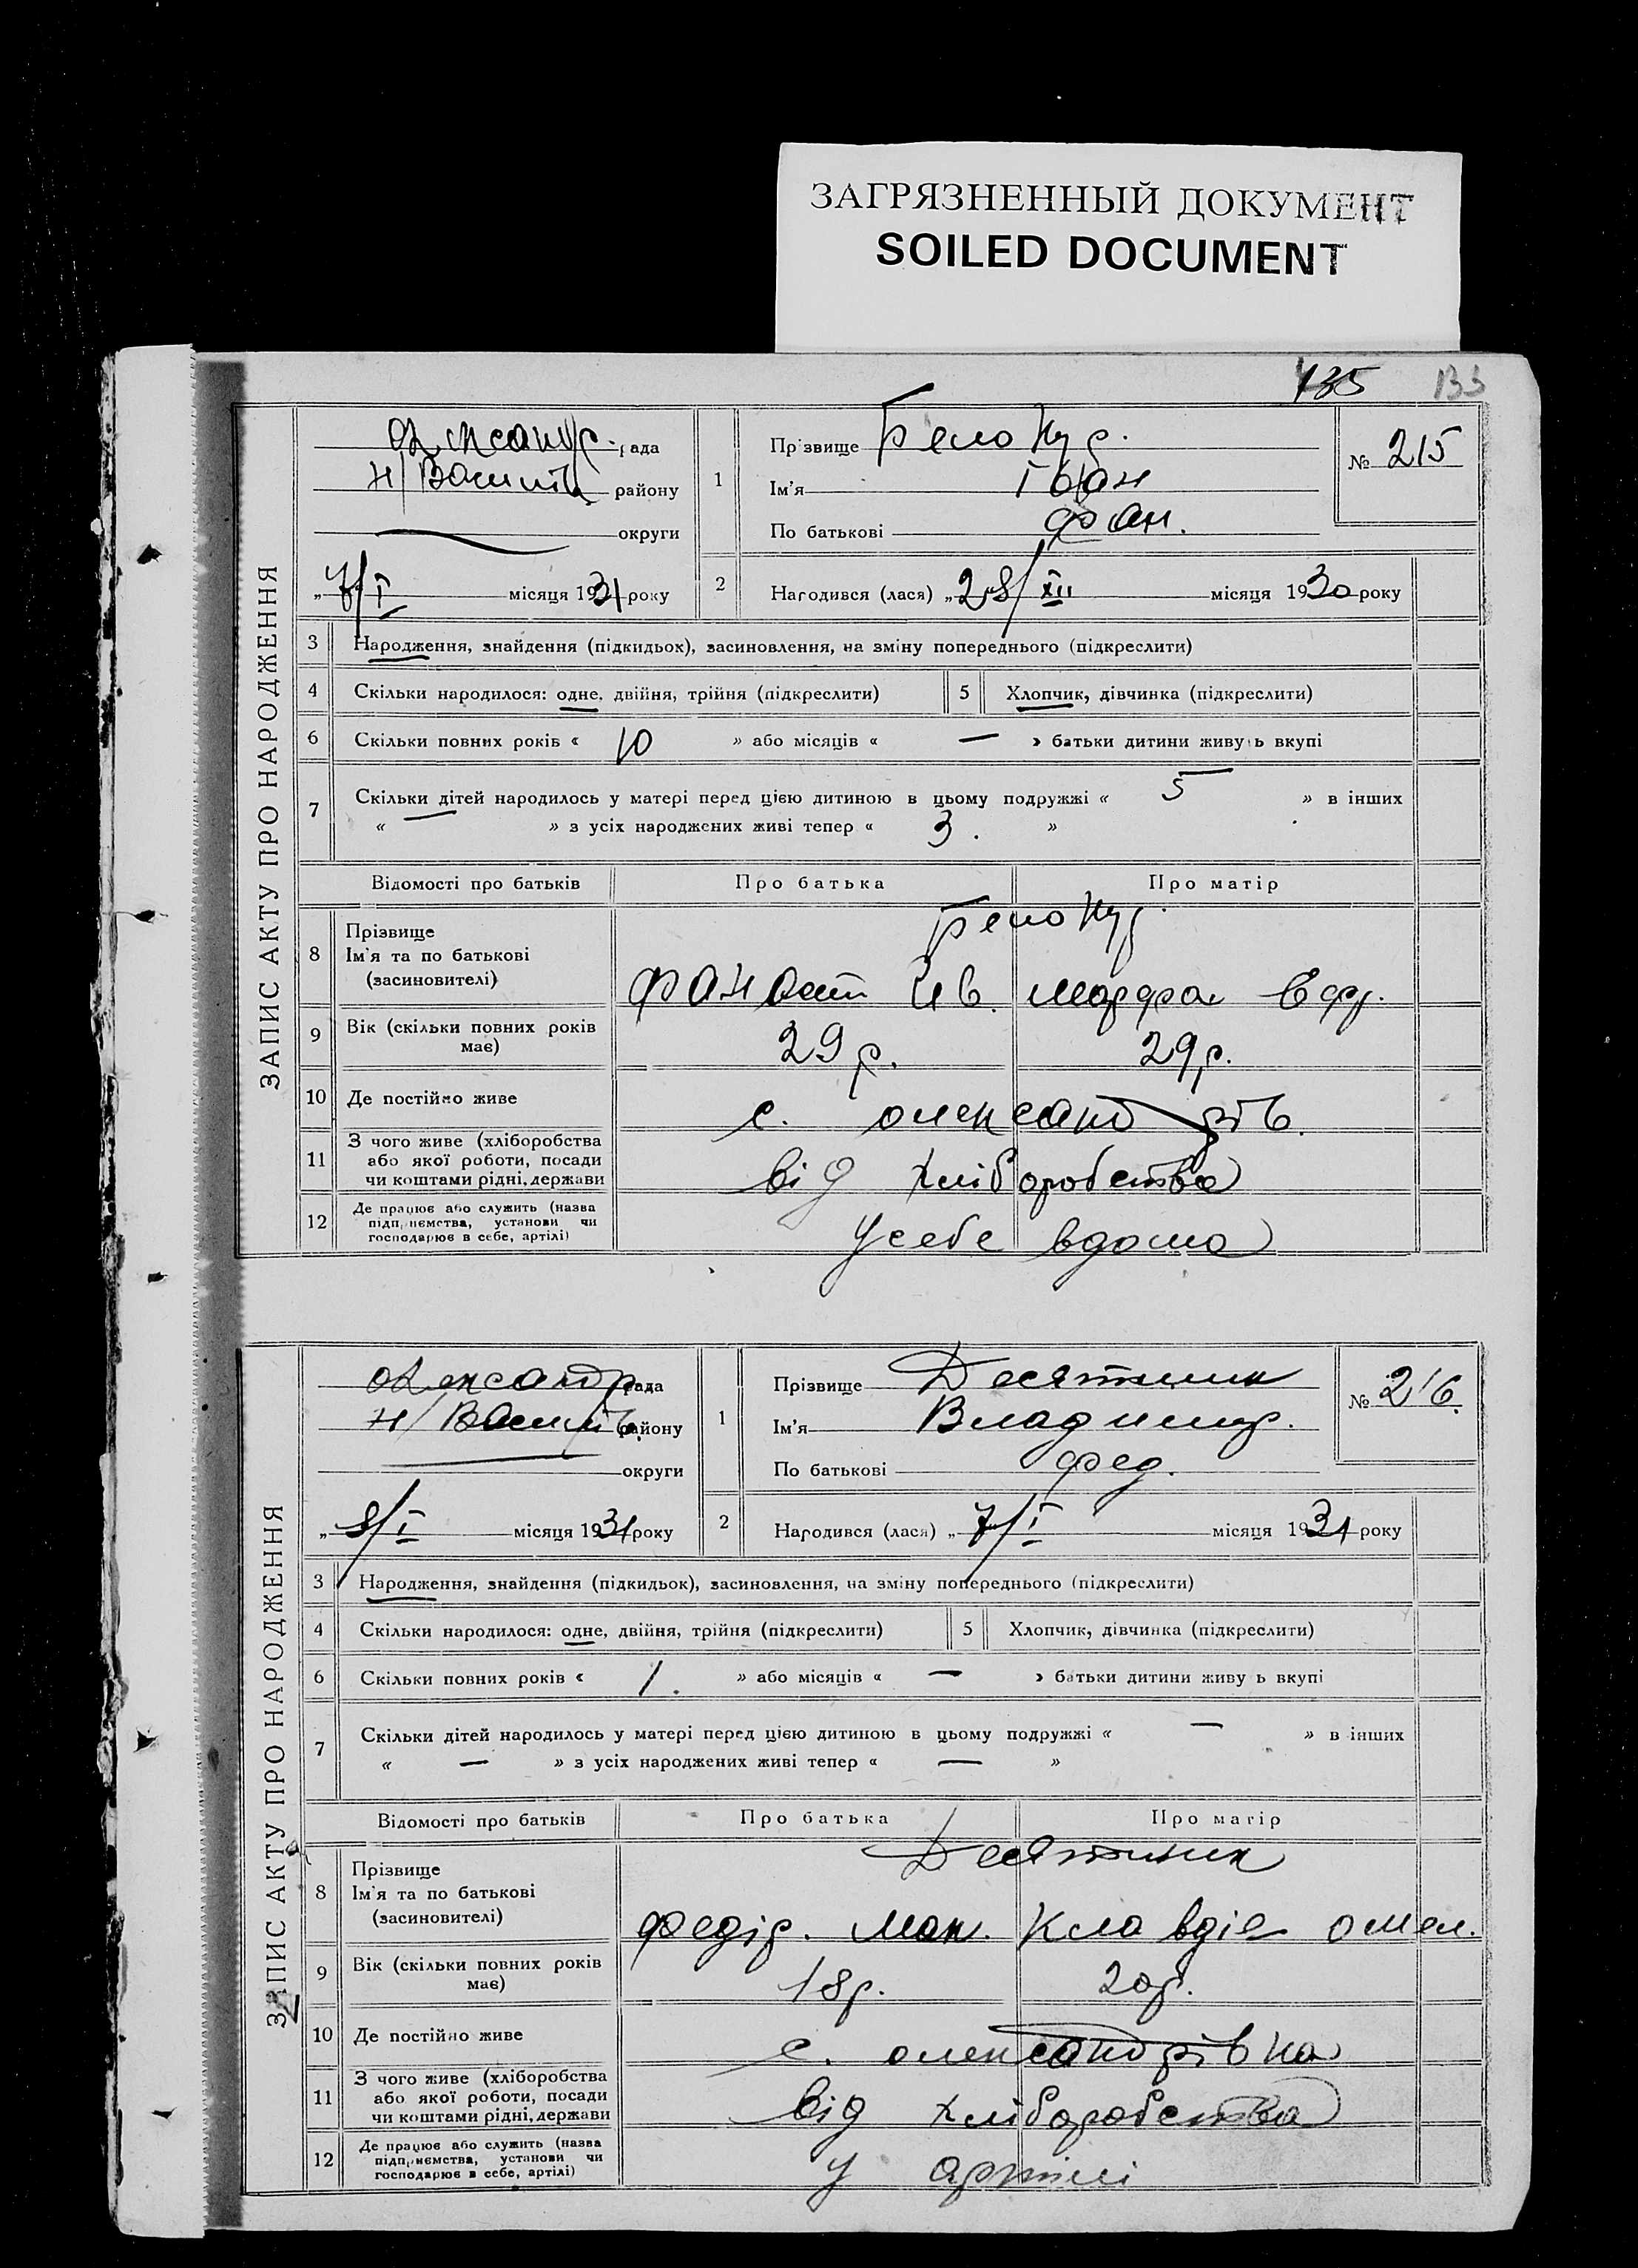 ЗАГРЯЗНЕННЫЙ ДОКУМЕНТ
SOILED DOCUMENT
135 133
ЗАПИС АКТУ ПРО НАРОДЖЕННЯ
Олександр. рада
Н/Василів району
округи
„7/I місяця 1931 року
1
Прізвище Белокур.
Ім'я Іван
По батькові Фан.
№ 215
2 Народився (лася) „28/XII місяця 1930 року
3 Народження, знайдення (підкидьок), засиновлення, на зміну попереднього (підкреслити)
4 Скільки народилося: одне, двійня, трійня (підкреслити) 5 Хлопчик, дівчинка (підкреслити)
6 Скільки повних років « 10 » або місяців « — » батьки дитини живуть вкупі
7 Скільки дітей народилось у матері перед цією дитиною в цьому подружжі « 5 » в інших
« — » з усіх народжених живі тепер « 3. »
Відомості про батьків Про батька Про матір
8 Прізвище
Ім'я та по батькові
(засиновителі)
Белокур.
Фанаст Ив. Марфа Єфр.
9 Вік (скільки повних років має) 29 р. 29 р.
10 Де постійно живе с. Олександрів.
11 З чого живе (хліборобства
або якої роботи, посади
чи коштами рідні, держави
від хліборобства
12 Де працює або служить (назва
підприємства, установи чи
господарює в себе, артілі)
У себе вдома
ЗАПИС АКТУ ПРО НАРОДЖЕННЯ
Олександр. рада
Н/Василів. району
округи
„8/I місяця 1931 року
1
Прізвище Десятник
Ім'я Владимир.
По батькові Фед.
№ 216.
2 Народився (лася) „7/I місяця 1931 року
3 Народження, знайдення (підкидьок), засиновлення, на зміну попереднього (підкреслити)
4 Скільки народилося: одне, двійня, трійня (підкреслити) 5 Хлопчик, дівчинка (підкреслити)
6 Скільки повних років « 1. » або місяців « — » батьки дитини живу ь вкупі
7 Скільки дітей народилось у матері перед цією дитиною в цьому подружжі « — » в інших
« — » з усіх народжених живі тепер « — »
Відомості про батьків Про батька Про матір
8 Прізвище
Ім'я та по батькові
(засиновителі)
Десятник
Федір. Мак. Клавдія Омел.
9 Вік (скільки повних років має) 18 р. 20 р.
10 Де постійно живе с. Олександрівка
11 З чого живе (хліборобства
або якої роботи, посади
чи коштами рідні, держави
від хліборобства
12 Де працює або служить (назва
підприємства, установи чи
господарює в себе, артілі)
У артілі